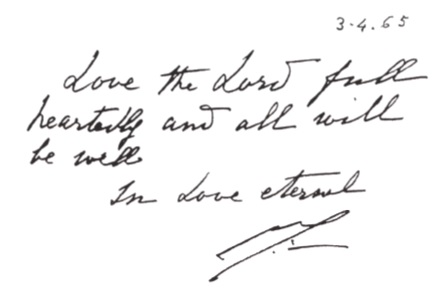 3.4.65
Love the Lord full
heartedly and all will
be well
In Love eternal